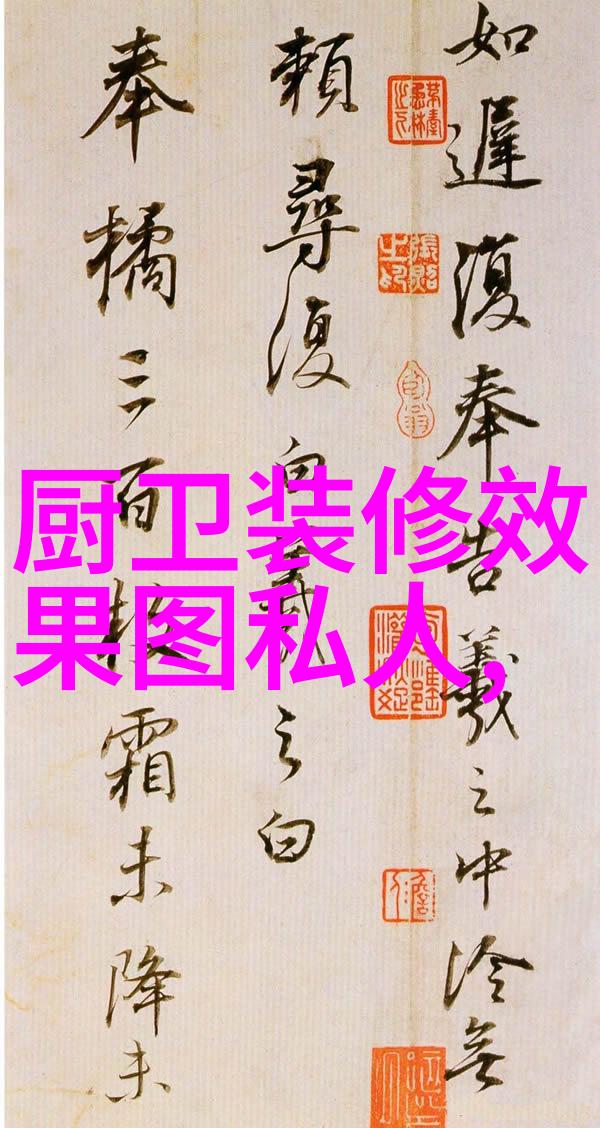 如遲復奉告羲之中冷無
賴尋復白羲之白
奉橘三百枚霜未降未
厨卫装修效
果图私人,